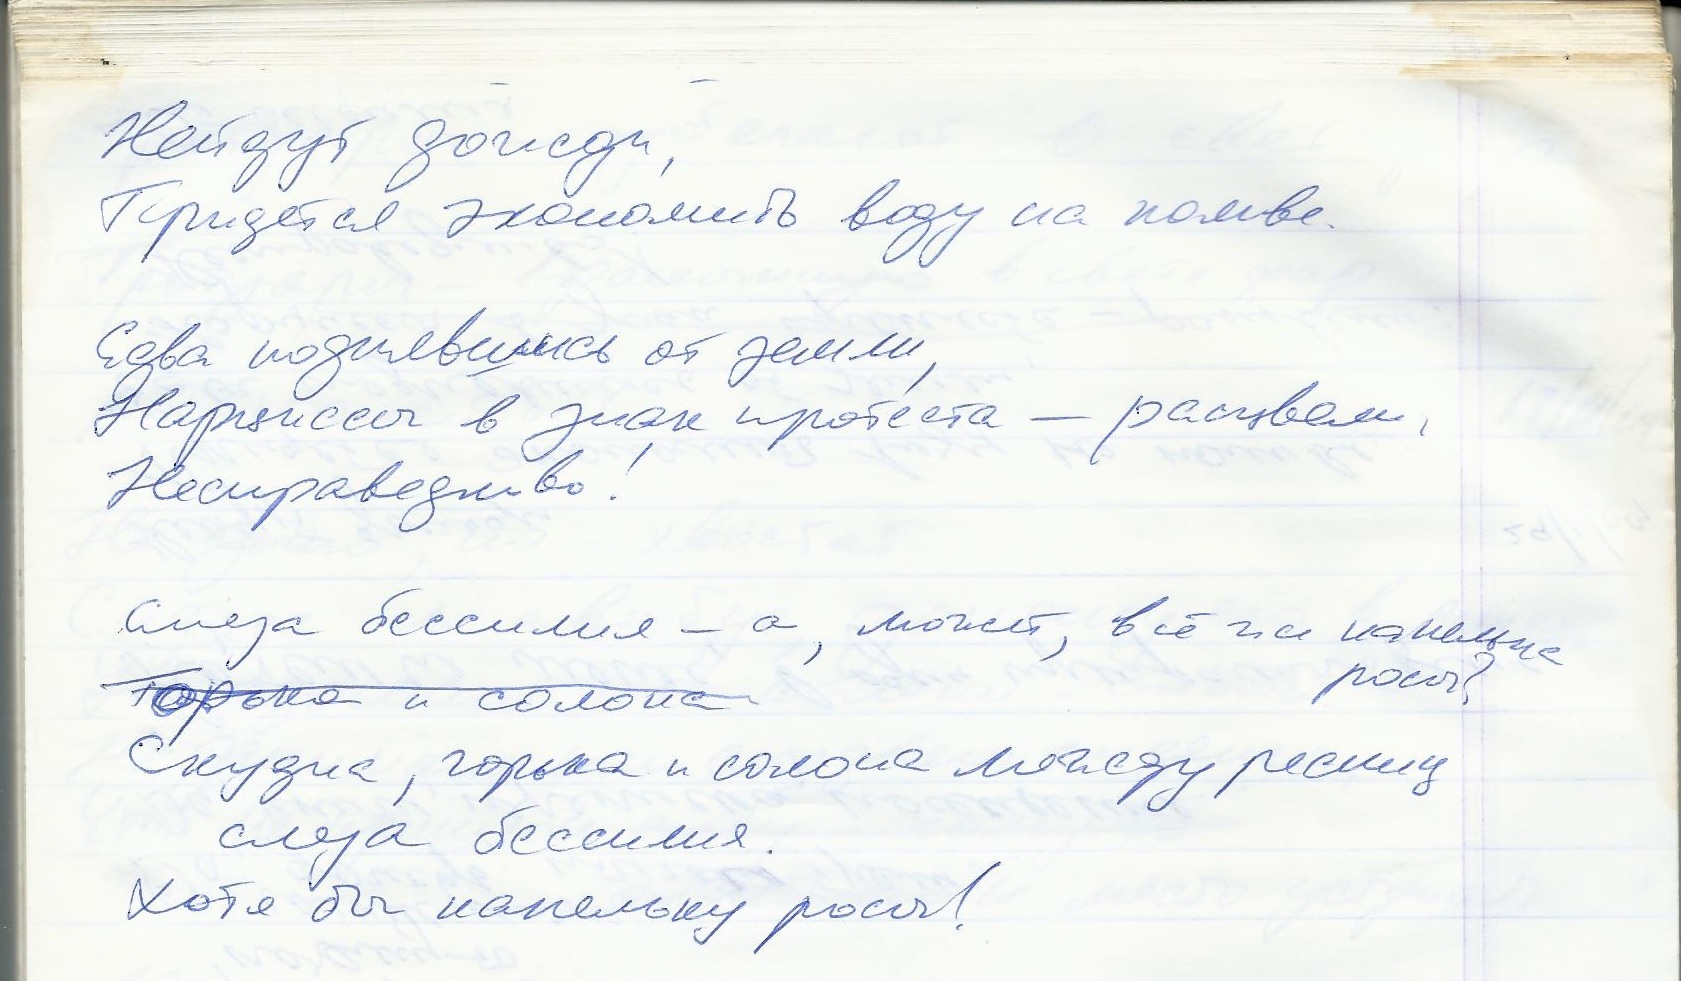 Нейдут дожди,
Придется экономить воду на поливе.
Едва поднявшись от земли,
Нарциссы в знак протеста – расцвели,
Несправедливо!
Слеза бессилия – а, может, всё же капелька
росы?
Горька и солона
Скудна, горька и солона между ресниц
слеза бессилия.
Хотя бы капельку росы!